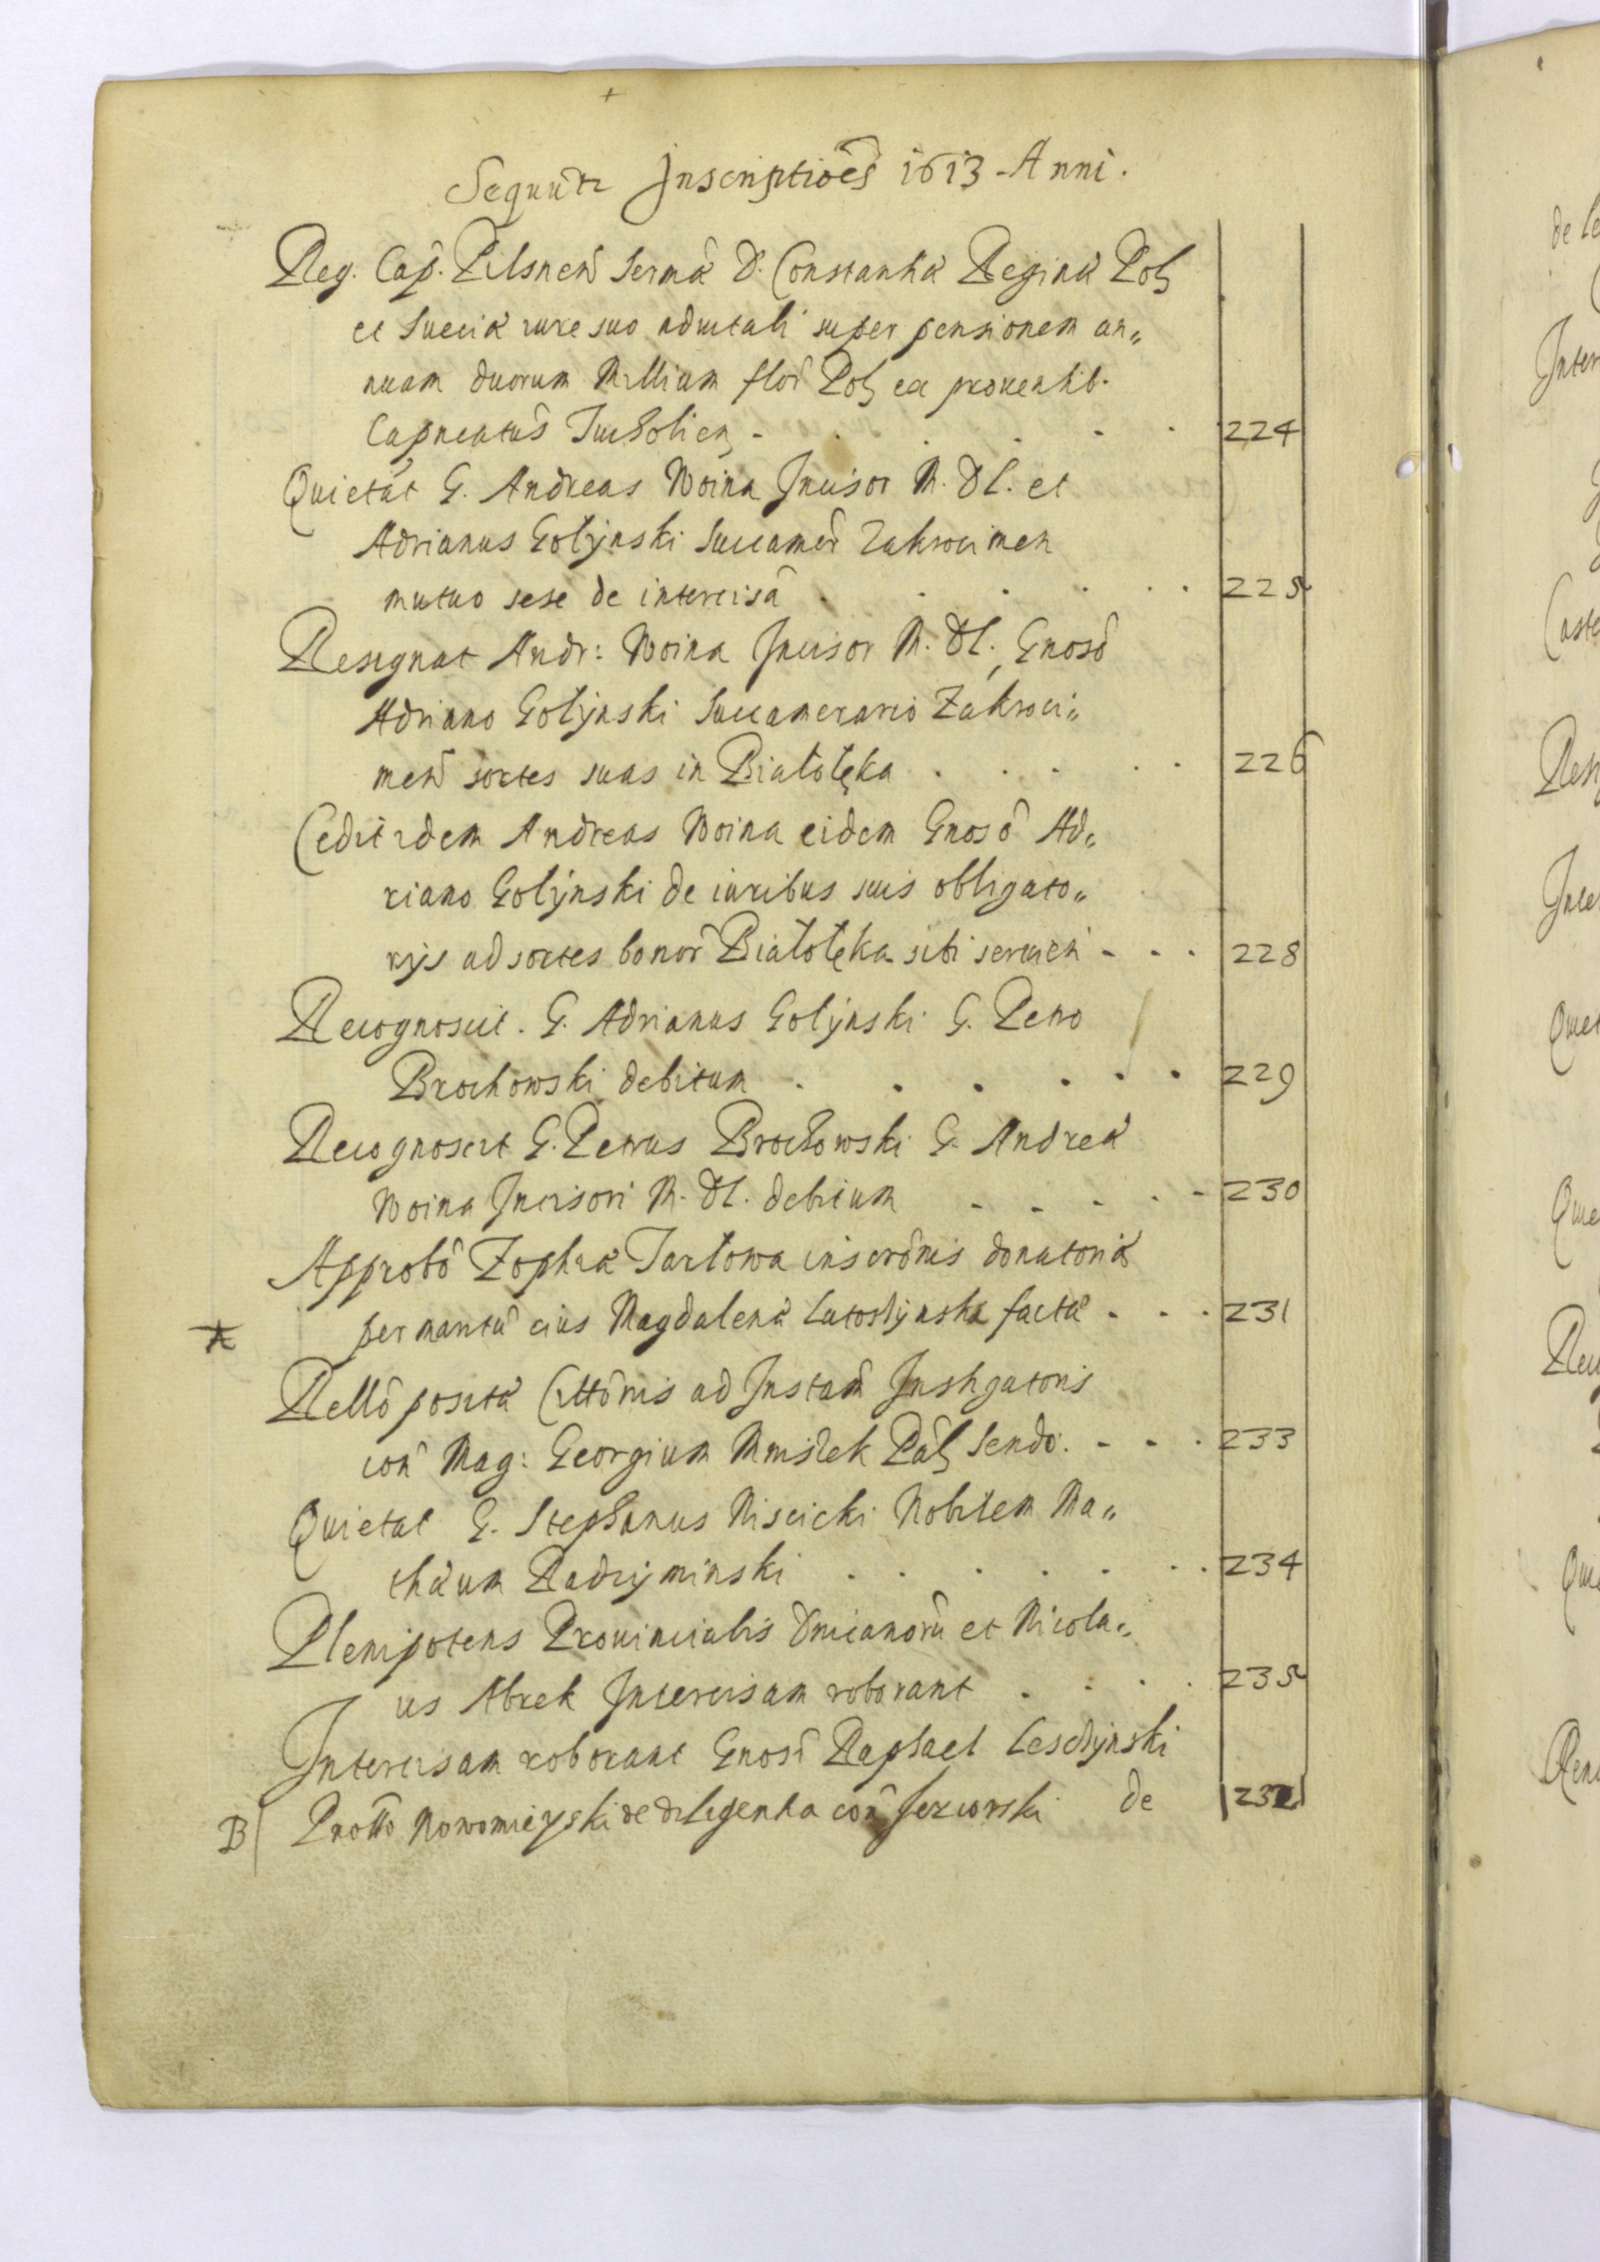 Sequũtr Inscriptiões 1613 Anni.
Reg. Cap. Pilsneñ Sermæ D. Constantiæ Reginæ Pol:
et Sueciæ iure suo aduitali super pensionem an„
nuam duorum Millium flor̃ Pol: ex prouentib.
Capneatus Tucholien: 224
Quietãt G. Andreas Woina Incisor M. D L. et
Adrianus Golÿnski Succamer̃ Zakrocimen
mutuo sese de intercisã 225
Resignat Andr: Woina Incisor M. D L. Gnosõ
Adriano Golÿnski Succamerario Zakroci„
meñ sortes suas in Białołęka 226
Cedit idem Andreas Woina eidem Gnosõ Ad„
riano Golÿnski de iuribus suis obligato„
rijs ad sortes bonor̃ Białołęka sibi seruien 228
Recognoscit. G. Adrianus Golÿnski G. Petro
Brochowski debitum 229
Recognoscit G. Petrus Brochowski G. Andreæ
Woina Incisori M. D L. debitum 230
Approbõ Zophiæ Tarłowa inscrõnis donatoriæ
per maritũ eius Magdalenæ Lutosłÿnska factæ 231
A
Rellõ positæ Cittõnis ad Instam̃ Instigatoris
coñ Mag: Georgium Mniszek Pal: Sendo. 233
Quietat G. Stephanus Miscicki Nobilem Ma„
thæum Radzÿminski 234
Plenipotens Prouincialis Dnicanorũ et Nicola„
us Abrek Intercisam roborant 235
Intercisam roborant Gnosi Raphael Lesczÿnski
de
B Prottõ Nowomieÿski de diligentia coñ Jeziorski 232